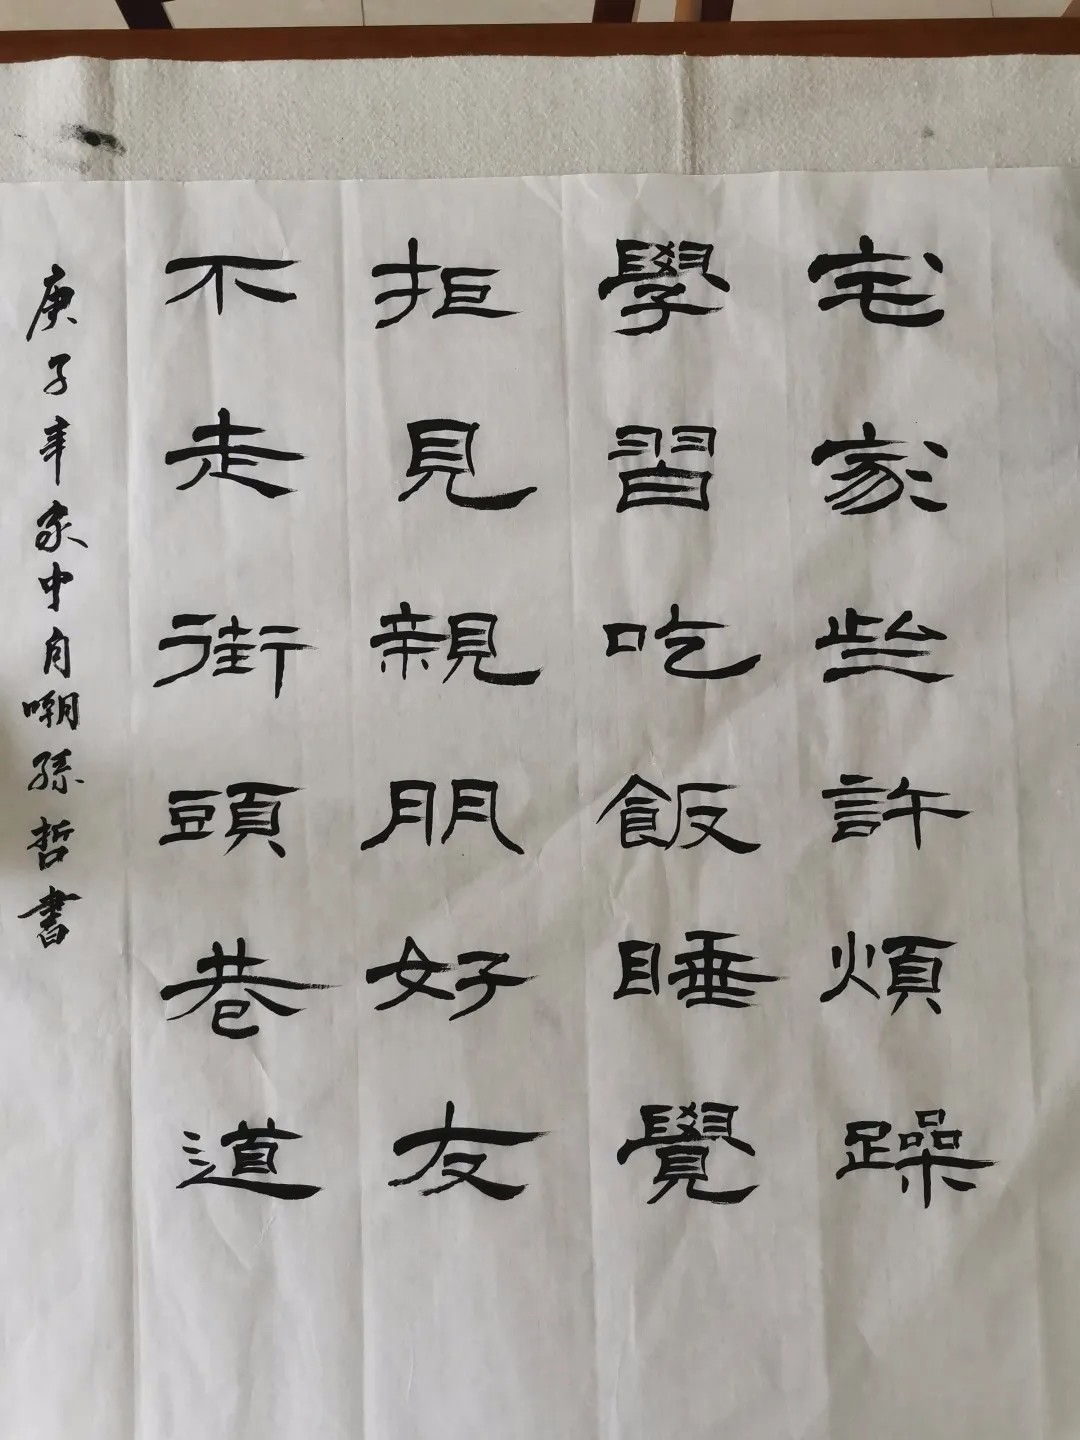 宅家些許煩躁
學習吃飯睡覺
拒見親朋好友
不走街頭巷道
庚子年家中自嘲孫哲書